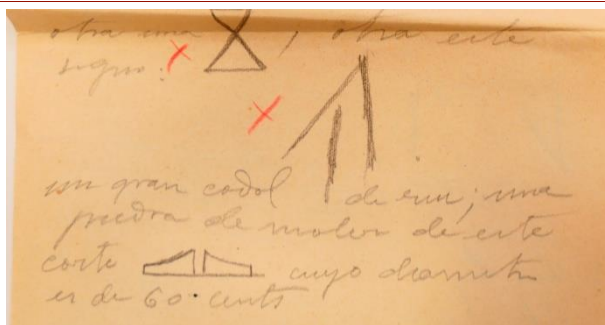 otra una , otra este
signo:
un gran codol de riu; una
piedra de moler de este
corte cuyo diametr
es de 60 cents